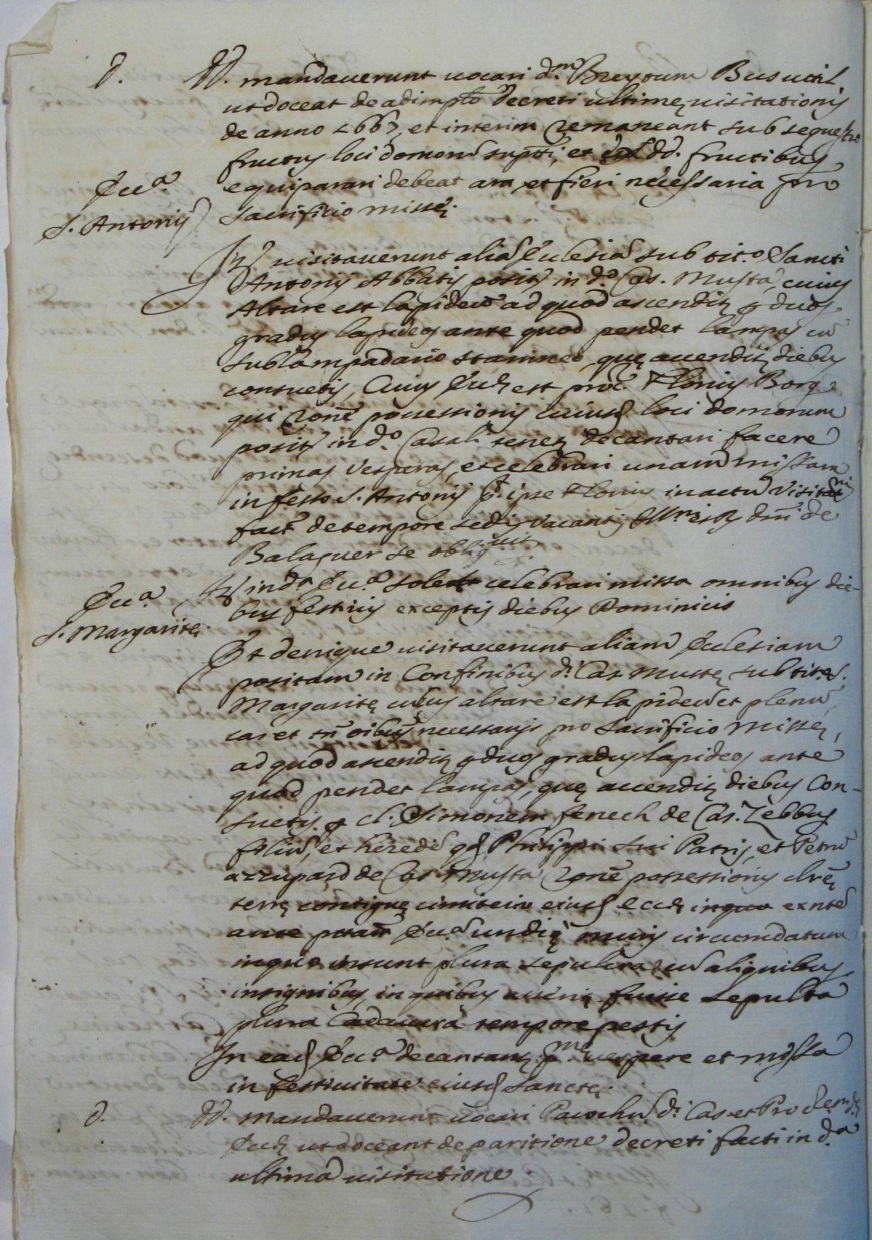 d. DD. mandaverunt vocari d.m Busuttil
ut doceat de adimpto decreti ultimę visitationis
de anno 1667, et interim remaneant sub seque
fructus loci domorū supti, et dd. fructibus
Ecc.a
equiparari debeat ara, et fieri necessaria pro
S. Antonij
sacrificio missę.
visitaverunt aliā Ecclesiā sub tit.o Sancti
Antonij Abbatis positā in d.o Cas. Musta, cuius
Altare est lapideū ad quod ascendit̨ p duos
gradus lapideos ante quod pendet lampas cū
sublampadario stamineo quę accendit̨ diebus
consuetis, Cuius Eccę est proc. Flonius Borg
qui rōne possessionis cuiusd loci domorum
positi in d.o Casali tenet̨ decantari facere
primas Vesperas, et celebrari unam missam
in festo S. Antonij ipse in actu visit
fact de tempore sedis vacantis dm̄i de
Balaguer se oblig
in d.a Ecc.a solet celebrari missa omnibus die-
Ecc.a
bus festivis exceptis diebus Dominicis
S. Margaritę
Et denique visitaverunt aliam Ecclesiam
positam in Confinibus d. Cas. Mustę sub tit. S.
Margaritę cuius altare est lapideū et plenū,
caret tn̄ oībus necessarijs pro sacrificio missę,
ad quod ascendit̨ p duos gradus lapideos ante
quod pendet lampas, quę accendit̨ diebus con-
suetis p cl. Simonem fenech de Cas. Zebbug
filiū, et heredē qd Philippi sui Patris, et Petrū
azzupard de Cas. Musta rōne possessionis
terrę contiguę cimiterio eiusd Eccę exn̄te
ante portam Ecc.a undiq muris circumdatum
in quo insunt plura sepulcra cū alignibus
insignibus in quibus fuisse sepulta
plura Cadavera tempore pestis
In ead Ecc.a decantant̨ p.me vespere et missa
in festivitate eiusd Sanctę.
d. DD. mandaverunt vocari Parochū d. Cas. et Proc.em d.ę
Eccę ut doceant de paritione decreti facti in d.a
ultimā visitatione